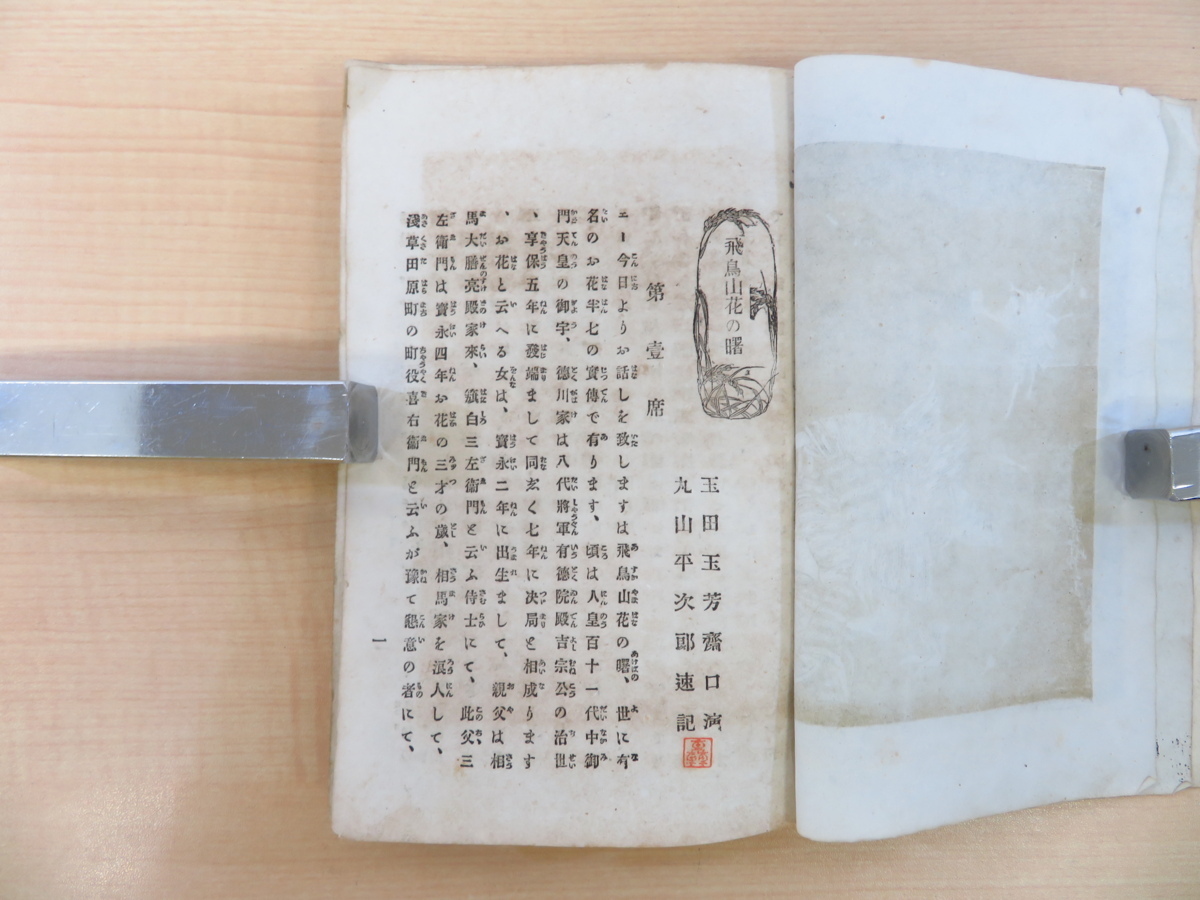 飛鳥山花の曙
玉田玉芳齋口演
丸山平次郎速記
第壹席
エー今日よりお話しを致しますは飛鳥山花の曙、世に有
名のお花半七の實傳で有ります、頃は人皇百十一代中御
門天皇の御宇、德川家は八代將軍有德院殿吉宗公の治世
、享保五年に發端まして同志く七年に决局と相成ります
、お花と云へる女は、寳永二年に出生まして、親父は相
馬大膳亮殿家來、籏白三左衞門と云ふ侍士にて、此父三
左衞門は寳永四年お花の三才の歲、相馬家を浪人して、
淺草田原町の町役喜右衞門と云ふが豫て懇意の者にて、
一